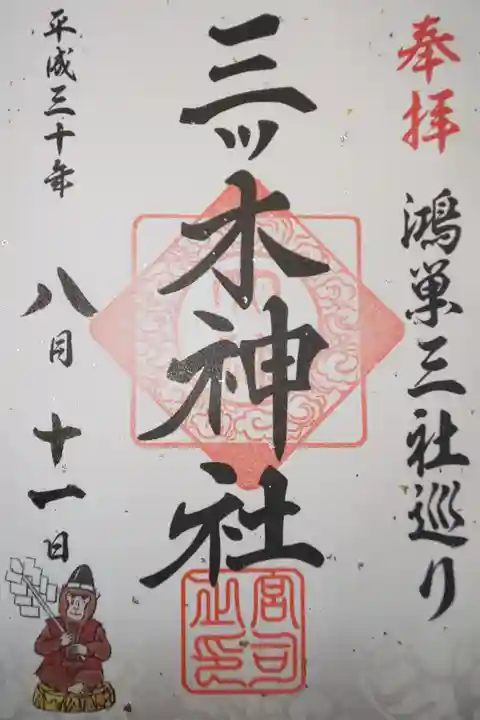 奉拝
鴻巣三社巡り
三ッ木神社
平成三十年
八月十一日
宮司之印